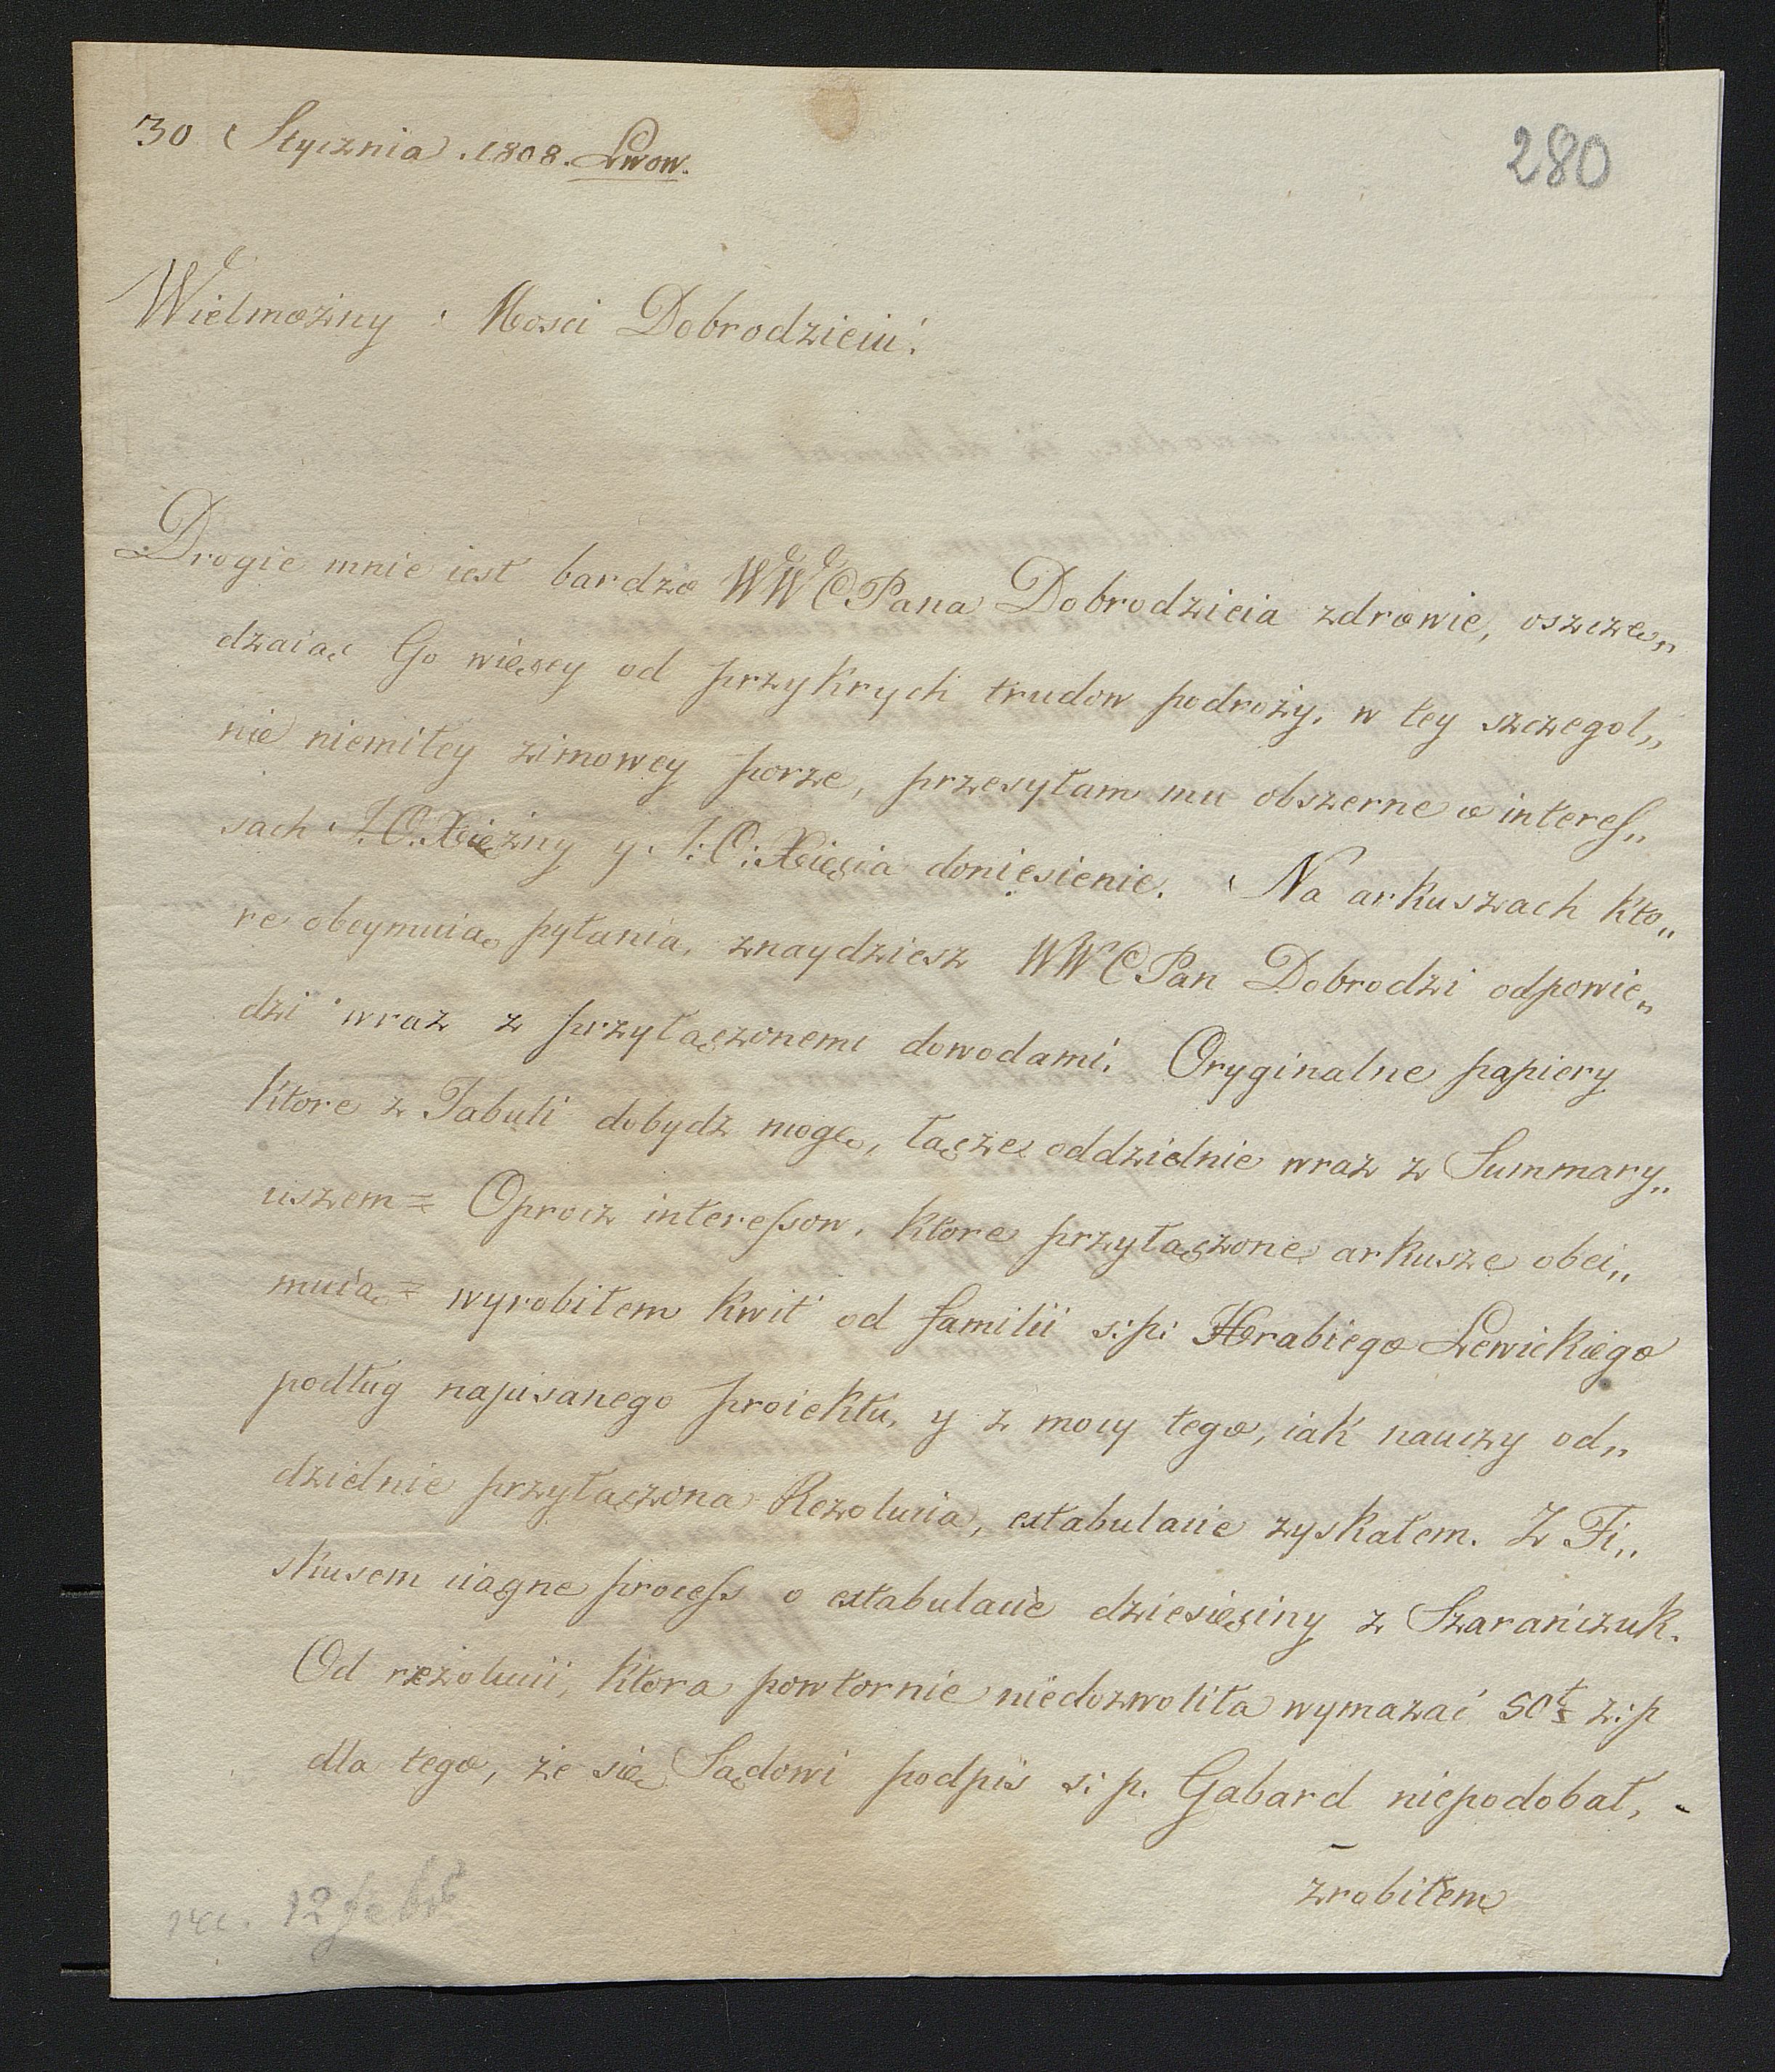 30 Stycznia .1808. Lwow.
280
Wielmożny Mosci Dobrodzieiu!
Drogie mnie iest bardzo WWCPana Dobrodzieia zdrowie, oszczę„
dzaiąc Go więcey od przykrych trudow podroży, w tey szczegol„
nie niemiłey zimowey porze, przesyłam mu obszerne o interes„
sach J.O.Xiężny y J:O:Xięcia doniesienie. Na arkuszach kto„
re obeymuią pytania, znaydziesz WWCPan Dobrodzi odpowie„
dzi wraz z przyłączonemi dowodami. Oryginalne papiery
ktore z Tabuli dobydz mogę, łączę oddzielnie wraz z Summary„
uszem = Oprocz interessow, ktore przyłączone arkusze obei„
muią = wyrobiłem kwit od familii s:p: Hrabiego Lewickiego
podług napisanego proiektu, y z mocy tego, iak nauczy od„
dzielnie przyłączona Rezolucia, extabulacie zyskałem. Z Fi„
skusem ciągnę process o extabulacie dziesięciny z Szarańczuk.
Od rezolucii, ktora powtornie niedozwoliła wymazać 50t z:p
dla tego, że się Sądowi podpis s: p. Gabard niepodobał, -
zrobiłem
rec. 12 febr